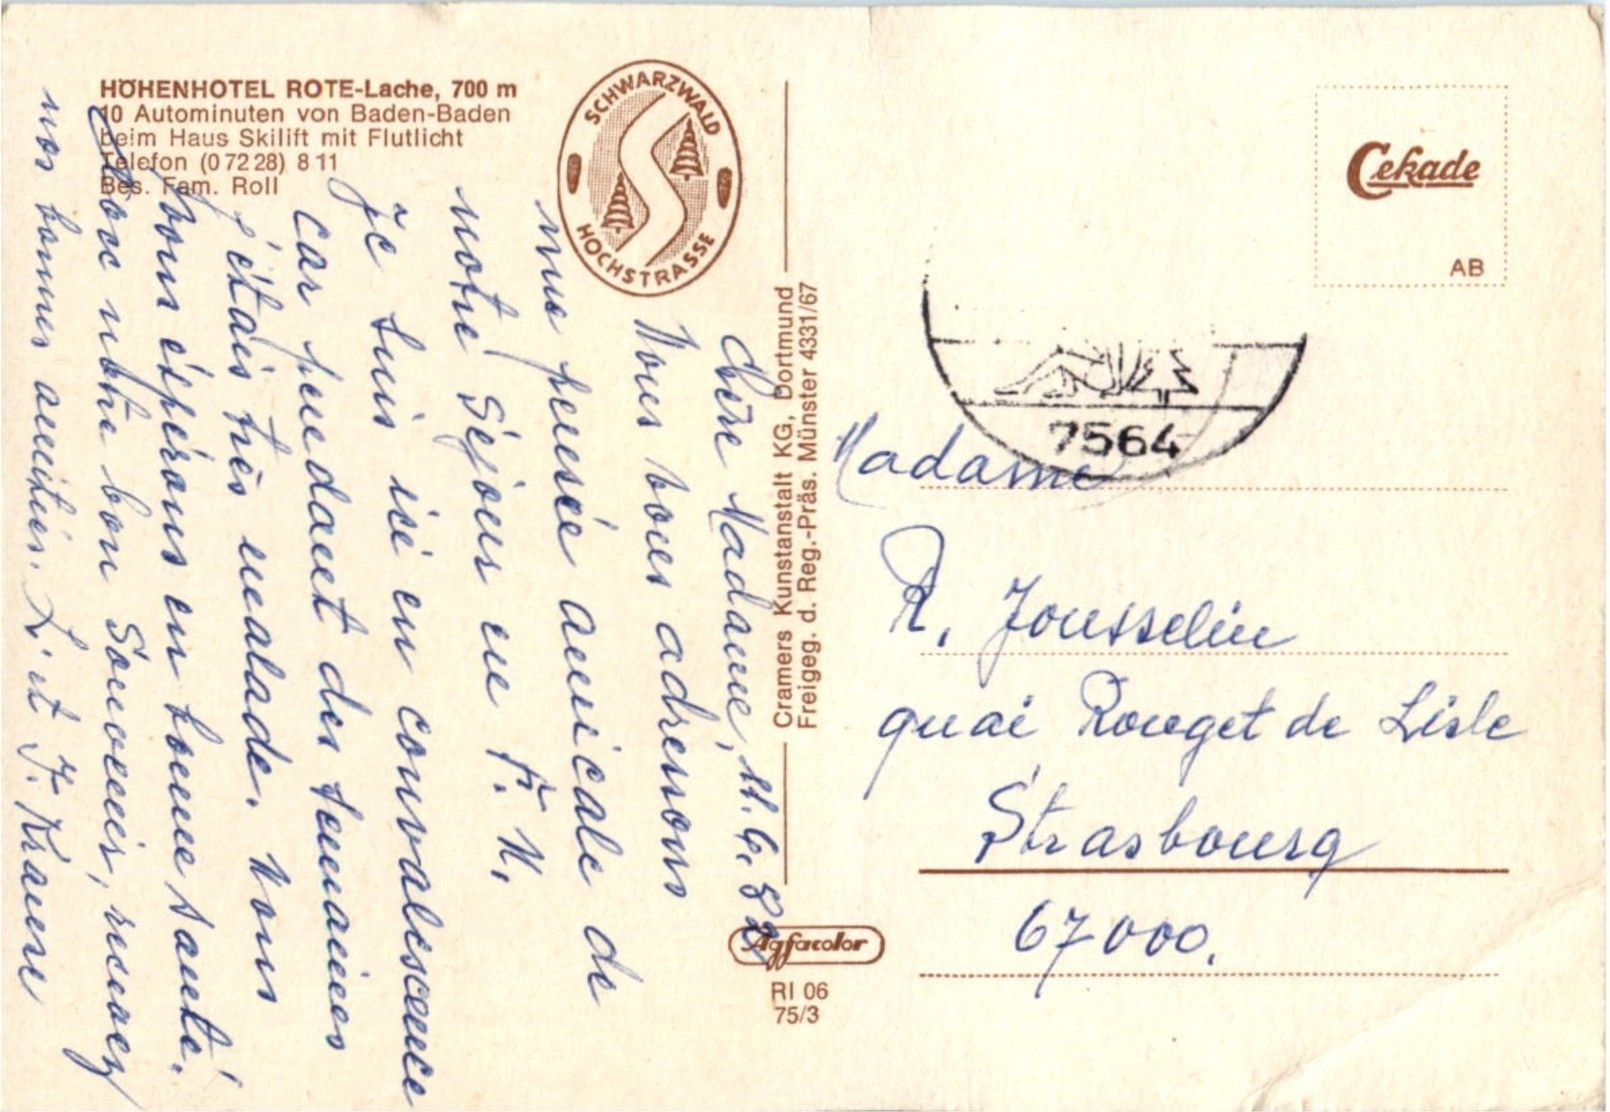 HÖHENHOTEL ROTE-Lache, 700 m
10 Autominuten von Baden-Baden
beim Haus Skilift mit Flutlicht
Telefon (0 72 28) 8 11
Bes. Fam. Roll
SCHWARZWALD
HOCHSTRASSE
Cekade
AB
Cramers Kunstanstalt KG, Dortmund
Freigeg. d. Reg.-Präs. Münster 4331/67
Agfacolor
RI 06
75/3
7564
Chère Madame, 11.6.82
Nous vous adressons
une pensée amicale de
notre Séjour en F. N.
Je suis ici en convalescence
car pendant des semaines
j'étais très malade. Nous
vous éspérons en bonne santé.
Avec notre bon Souvenir, recevez
nos bonnes amitiés. L. et F. Krauss
Madame
R. Jousselin
quai Rouget de Lisle
Strasbourg
67000.